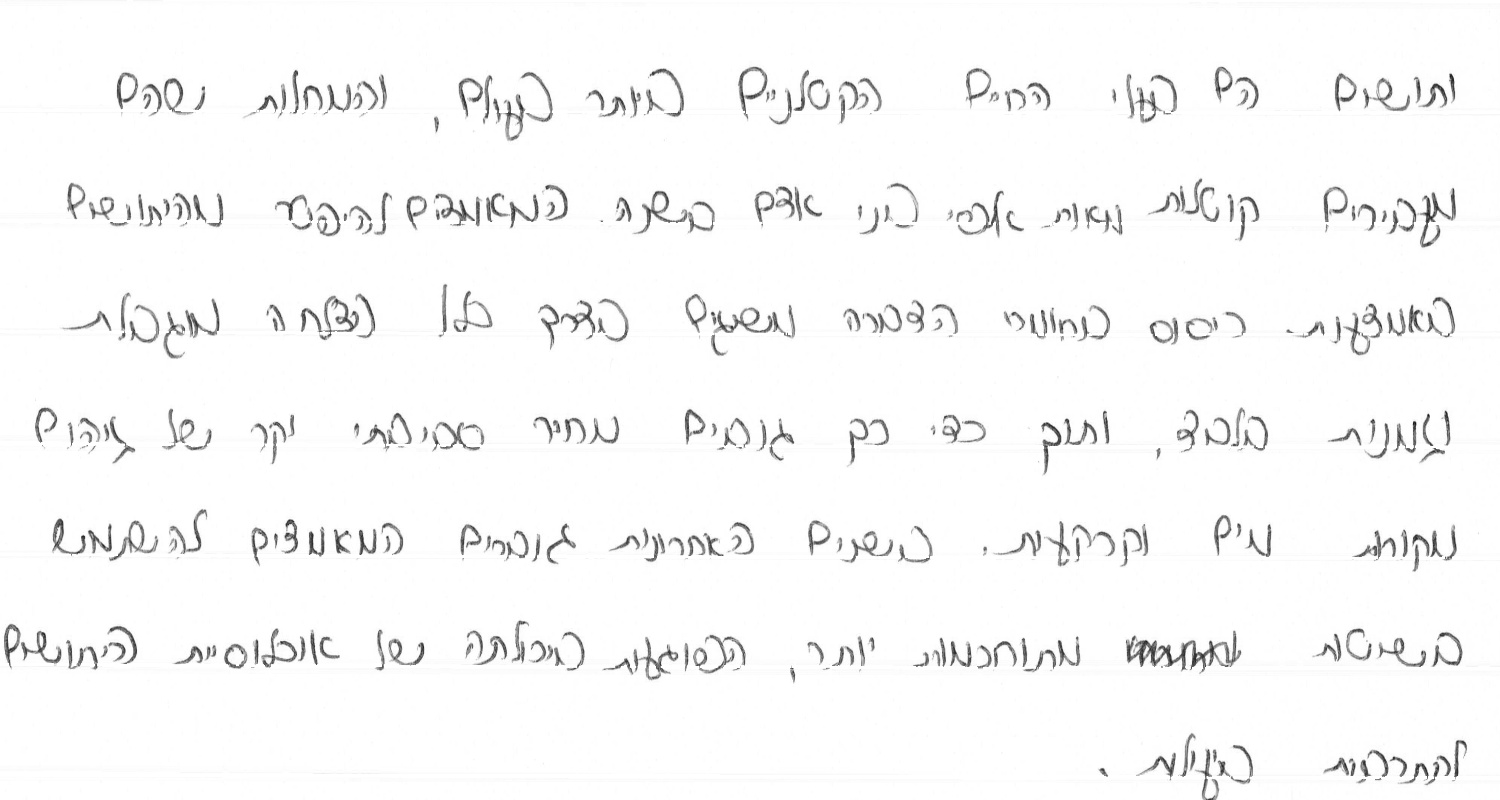 יתושים הם בעלי החיים הקטלניים ביותר בעולם, והמחלות שהם
מעבירים קוטלות מאות אלפי בני אדם בשנה. המאמצים להיפטר מהיתושים
באמצעות ריסוס בחומרי הדברה משיגים בדרך כלל הצלחה מוגבלת
וזמנית בלבד, ותוך כדי כך גובים מחיר סביבתי יקר של זיהום
מקורות מים וקרקעות. בשנים האחרונות גוברים המאמצים להשתמש
בשיטות מתוחכמות יותר, הפוגעות ביכולתה של אוכלוסיית היתושים
להתרבות ביעילות.